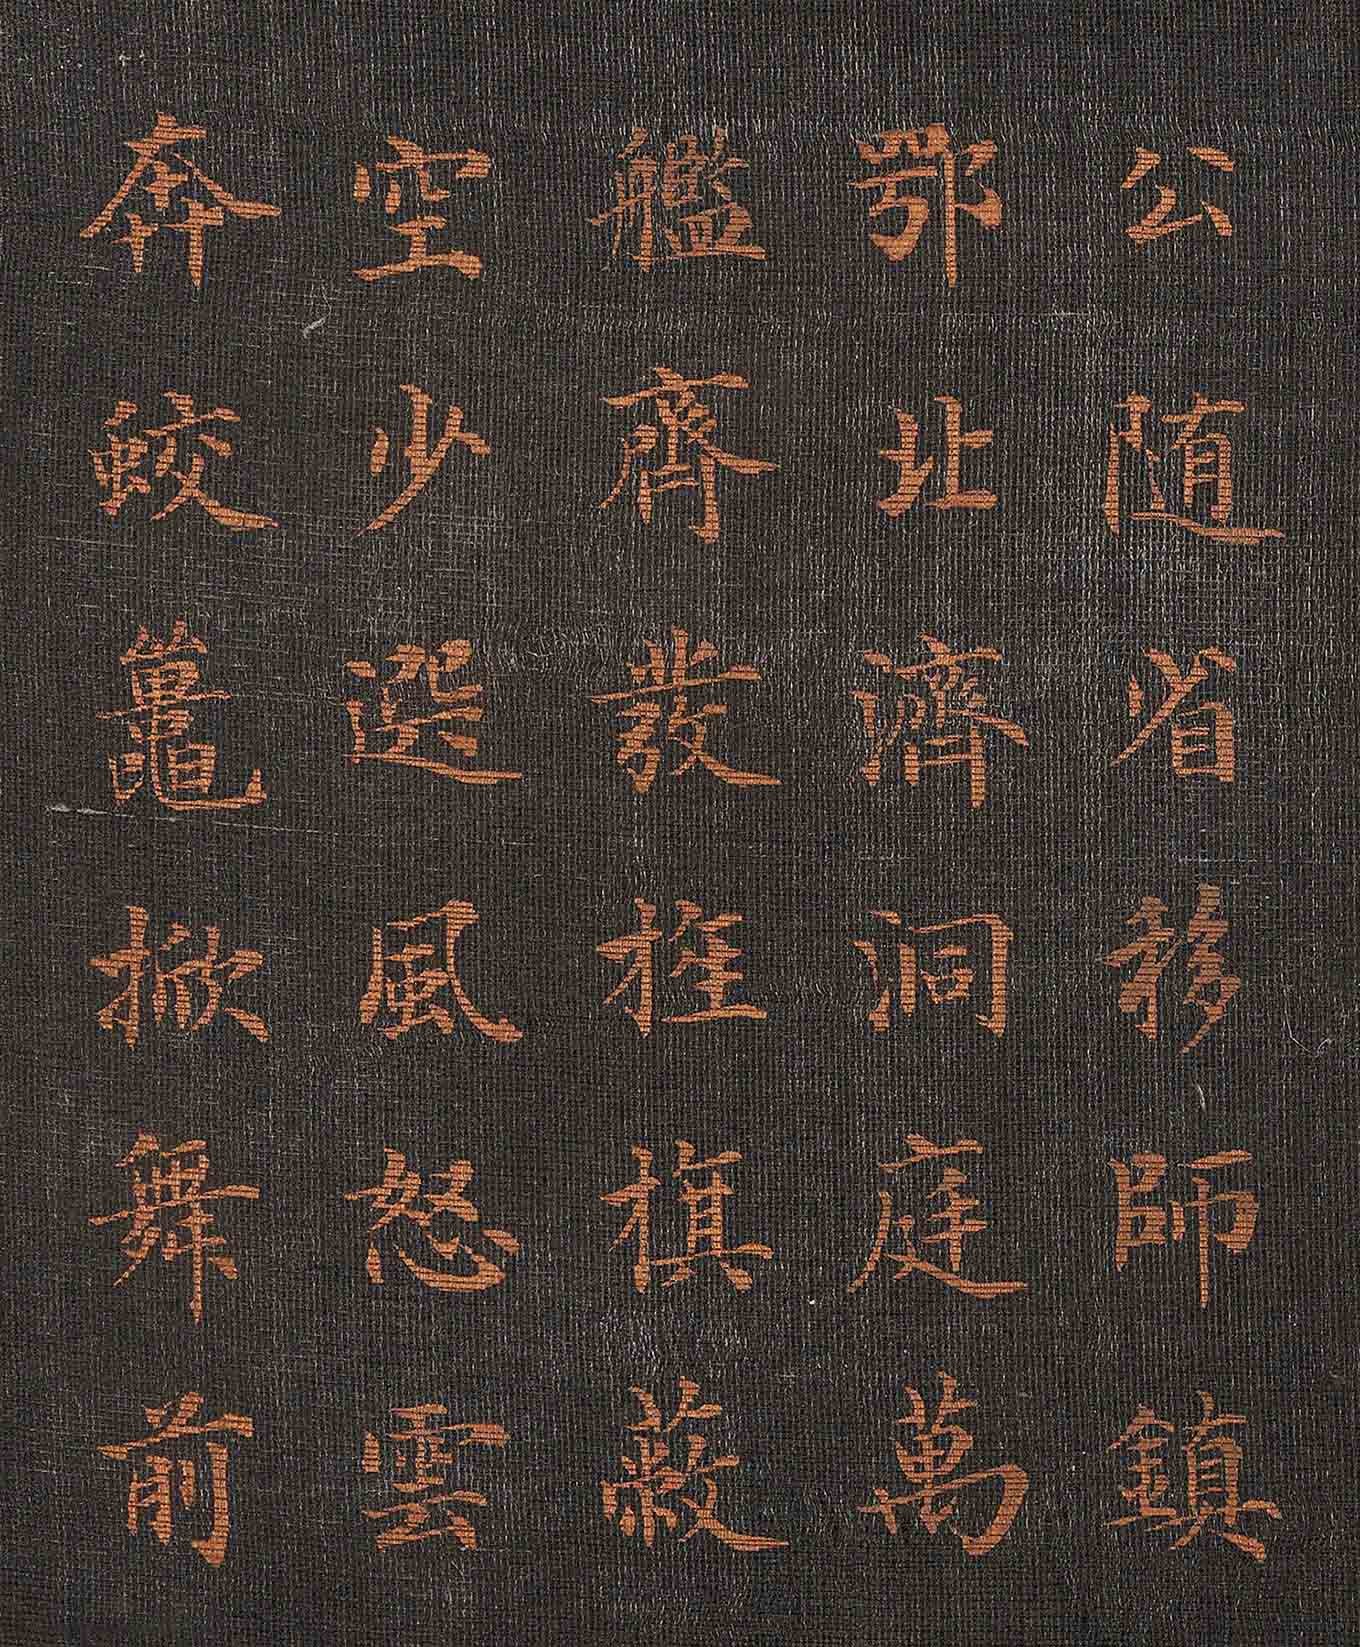 公随省移師鎮
鄂北濟洞庭萬
艦齊發挂旗蔽
空少選風怒雲
奔蛟鼉掀舞前